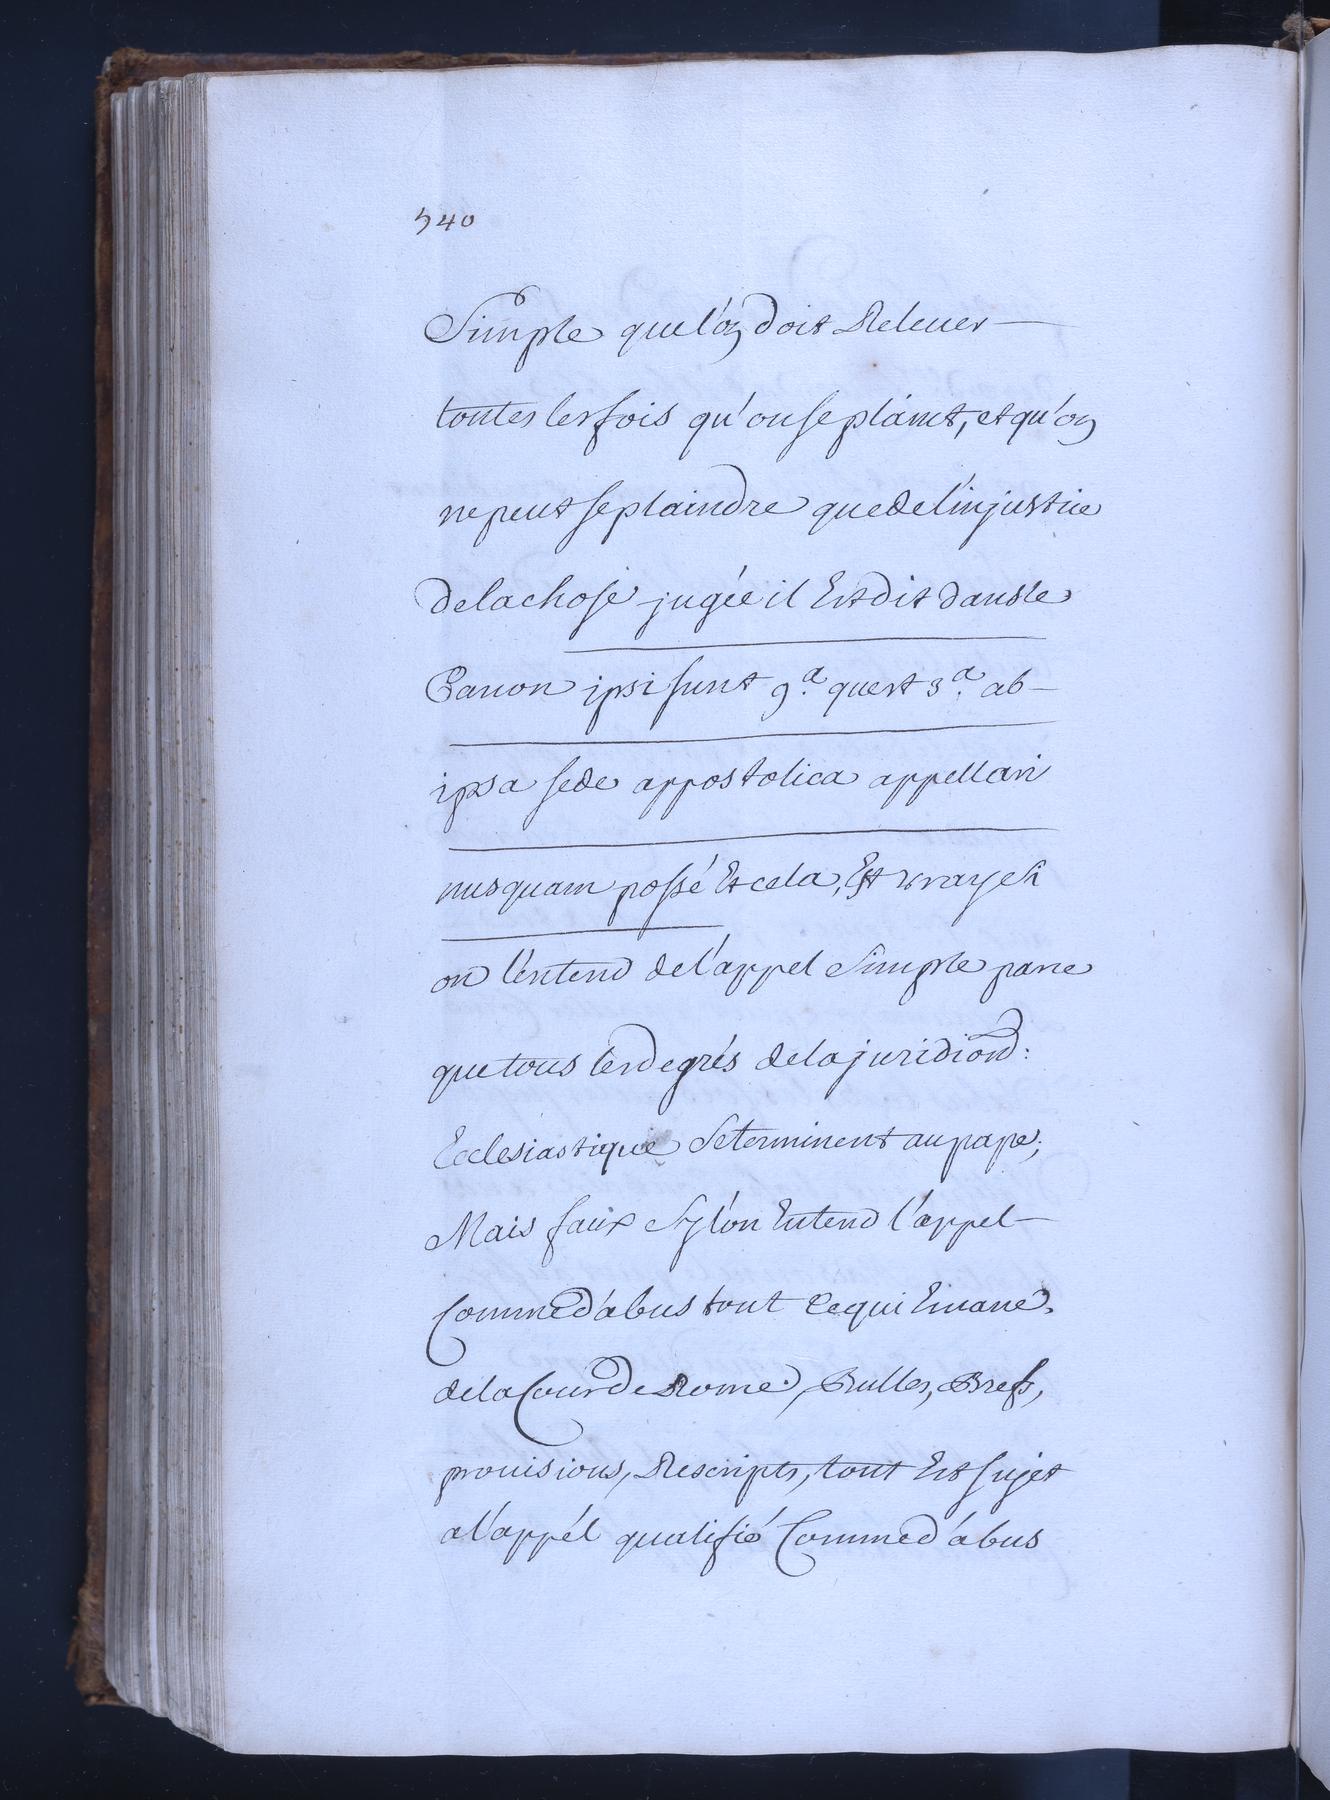 540
Simple que l'on doit Releuer
toutes les fois qu'on se plaint, et qu'on
ne peut se plaindre que de l'injustice
de la chose jugée il Est dit dans le
Canon ipsi sunt 9.a quest 3.a ab
ipsa sede appostolica appellari
nusquam possé Et cela, Est vray si
on l'entend de l'appel Simple parce
que tous les degrés de la juridion:
Ecclesiastique se terminent au pape;
Mais faux Sy l'on Entend l'appel
Comme d'abus tout Ce qui Emane
de la Cour de Rome, Bulles, Brefs,
prouisions, Rescripts, tout Est sujet
a l'appél qualifié Comme d'abus